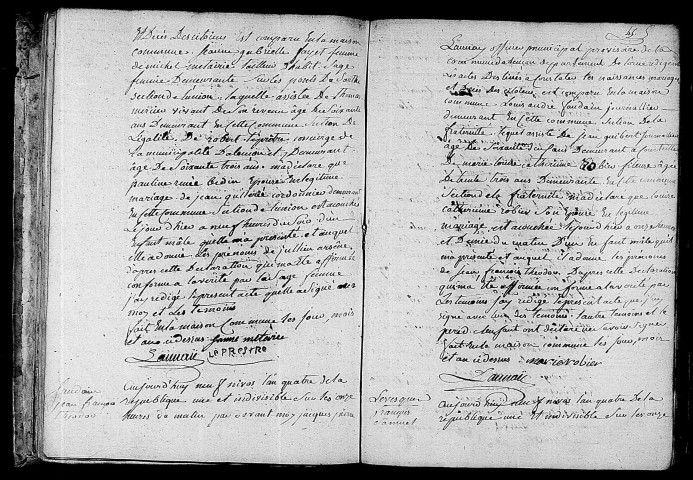 et Décès Des citoiens Est comparu En la maison
commune marie gabrielle fayet femme
de michel metairie tailleur d'habit Sage
femme Demeurante Sur les ponts De Sarthe
Section de l'union laquelle assistée de thomas
mercier vivant de Son revenu âgé De Soixante
ans Demeurant En cette commune Section De
l'Egalité De robert lepretre concierge de
la municipalité D'alençon et y Demeurant
âgé De Soixante trois ans. m'a déclaré que
pauline renée bedin Epouse En légitime
mariage De jean guillerie cordonnier demeurant
En cette commune Section de l'union Est accouchée
Le jour d'hier a neuf heures du Soir d'un
Enfant mâle qu'elle m'a présenté et auquel
elle a donné Les prénoms de jullien arsène
D'après cette Déclaration qui m'a Eté affirmée
conforme a la vérité par la Sage femme
j'ay rédigé le présent acte qu'elle a Signé avec
moy et Les temoins
fait En la maison Commune les jour, mois
et an ci dessus femme métairie
Launai LEPRESTRE
jean françois
theodor
aujourd'huy neuf nivos l'an quatre de la
république une et indivisible Sur les onze
heures du matin par devant moy jacques pierre
Launay officier municipal provisoire de la
commune d'alençon département de l'orne rédigeant
Les actes Destinés a constater les naissances mariages
et Décès des citoiens, est comparu En la maison
commune Louis andré journallier
demeurant En cette commune Section de la
fraternité lequel assisté De jean guibert journallier
âgé De Soixante dix ans Demeurant a
De marie louise catherine robier fileuse âgée
De trente trois ans Demeurante En cette commune
Section de la fraternité m'a déclaré que Louise
catherine robier Son Epouse En légitime
mariage Est accouchée le jour d'hier a onze heures
et Demie du matin D'un Enfant mâle qu'il
m'a présenté et auquel il a donné les prénoms
de jean françois theodor. D'après cette déclaration
qui m'a Eté affirmée conforme a la vérité par
Les temoins j'ay rédigé le présent acte que j'ay
Signé avec l'un des temoins l'autre temoins et le
père de l'enfant ont déclaré ne Savoir Signer
fait En la maison commune les jour, mois
et an ci dessus marie robier
Launai
Levesque
françois
Samuel
aujourd'huy neuf nivos l'an quatre de la
république une Et indivisible Sur les onze